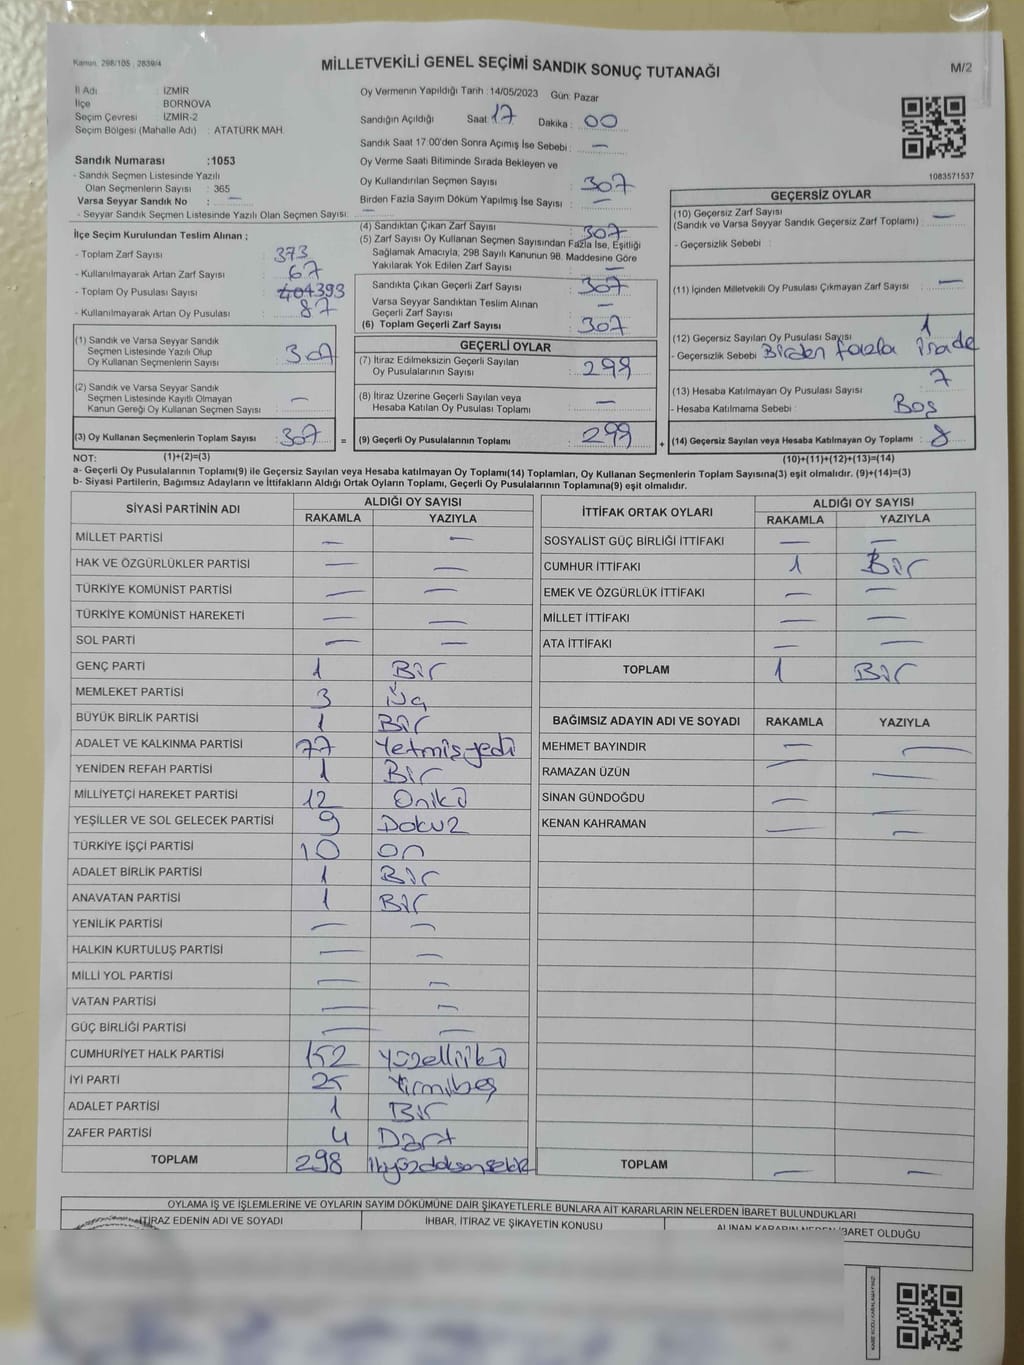 Kanun: 298/105 , 2839/4
MİLLETVEKİLİ GENEL SEÇİMİ SANDIK SONUÇ TUTANAĞI
M/2
İl Adı : İZMİR
İlçe : BORNOVA
Seçim Çevresi : İZMİR-2
Seçim Bölgesi (Mahalle Adı) : ATATÜRK MAH.
Oy Vermenin Yapıldığı Tarih : 14/05/2023 Gün: Pazar
Sandığın Açıldığı Saat : 17 Dakika : 00
Sandık Saat 17:00'den Sonra Açımış İse Sebebi : —
Sandık Numarası :1053
- Sandık Seçmen Listesinde Yazılı
Olan Seçmenlerin Sayısı : 365
Varsa Seyyar Sandık No : —
- Seyyar Sandık Seçmen Listesinde Yazılı Olan Seçmen Sayısı: —
Oy Verme Saati Bitiminde Sırada Bekleyen ve
Oy Kullandırılan Seçmen Sayısı : 307
Birden Fazla Sayım Döküm Yapılmış İse Sayısı : —
1083571537
İlçe Seçim Kurulundan Teslim Alınan ;
- Toplam Zarf Sayısı : 373
- Kullanılmayarak Artan Zarf Sayısı : 67
- Toplam Oy Pusulası Sayısı : 404 393
- Kullanılmayarak Artan Oy Pusulası : 87
(1) Sandık ve Varsa Seyyar Sandık
Seçmen Listesinde Yazılı Olup
Oy Kullanan Seçmenlerin Sayısı : 307
(2) Sandık ve Varsa Seyyar Sandık
Seçmen Listesinde Kayıtlı Olmayan
Kanun Gereği Oy Kullanan Seçmen Sayısı : —
(3) Oy Kullanan Seçmenlerin Toplam Sayısı : 307 =
(4) Sandıktan Çıkan Zarf Sayısı : 307
(5) Zarf Sayısı Oy Kullanan Seçmen Sayısından Fazla İse, Eşitliği
Sağlamak Amacıyla, 298 Sayılı Kanunun 98. Maddesine Göre
Yakılarak Yok Edilen Zarf Sayısı : —
Sandıkta Çıkan Geçerli Zarf Sayısı : 307
Varsa Seyyar Sandıktan Teslim Alınan
Geçerli Zarf Sayısı : —
(6) Toplam Geçerli Zarf Sayısı : 307
GEÇERLİ OYLAR
(7) İtiraz Edilmeksizin Geçerli Sayılan
Oy Pusulalarının Sayısı : 299
(8) İtiraz Üzerine Geçerli Sayılan veya
Hesaba Katılan Oy Pusulası Toplamı : —
(9) Geçerli Oy Pusulalarının Toplamı : 299 +
GEÇERSİZ OYLAR
(10) Geçersiz Zarf Sayısı : —
(Sandık ve Varsa Seyyar Sandık Geçersiz Zarf Toplamı)
- Geçersizlik Sebebi :
(11) İçinden Milletvekili Oy Pusulası Çıkmayan Zarf Sayısı : —
(12) Geçersiz Sayılan Oy Pusulası Sayısı : 1
- Geçersizlik Sebebi : Birden fazla irade
(13) Hesaba Katılmayan Oy Pusulası Sayısı : 7
- Hesaba Katılmama Sebebi : Boş
(14) Geçersiz Sayılan veya Hesaba Katılmayan Oy Toplamı : 8
NOT: (1)+(2)=(3) (10)+(11)+(12)+(13)=(14)
a- Geçerli Oy Pusulalarının Toplamı(9) ile Geçersiz Sayılan veya Hesaba katılmayan Oy Toplamı(14) Toplamları, Oy Kullanan Seçmenlerin Toplam Sayısına(3) eşit olmalıdır. (9)+(14)=(3)
b- Siyasi Partilerin, Bağımsız Adayların ve İttifakların Aldığı Ortak Oyların Toplamı, Geçerli Oy Pusulalarının Toplamına(9) eşit olmalıdır.
SİYASİ PARTİNİN ADI ALDIĞI OY SAYISI
RAKAMLA YAZIYLA
MİLLET PARTİSİ — —
HAK VE ÖZGÜRLÜKLER PARTİSİ — —
TÜRKİYE KOMÜNİST PARTİSİ — —
TÜRKİYE KOMÜNİST HAREKETİ — —
SOL PARTİ — —
GENÇ PARTİ 1 Bir
MEMLEKET PARTİSİ 3 Üç
BÜYÜK BİRLİK PARTİSİ 1 Bir
ADALET VE KALKINMA PARTİSİ 77 Yetmişyedi
YENİDEN REFAH PARTİSİ 1 Bir
MİLLİYETÇİ HAREKET PARTİSİ 12 Oniki
YEŞİLLER VE SOL GELECEK PARTİSİ 9 Dokuz
TÜRKİYE İŞÇİ PARTİSİ 10 On
ADALET BİRLİK PARTİSİ 1 Bir
ANAVATAN PARTİSİ 1 Bir
YENİLİK PARTİSİ — —
HALKIN KURTULUŞ PARTİSİ — —
MİLLİ YOL PARTİSİ — —
VATAN PARTİSİ — —
GÜÇ BİRLİĞİ PARTİSİ — —
CUMHURİYET HALK PARTİSİ 152 Yüzelliiki
İYİ PARTİ 25 Yirmibeş
ADALET PARTİSİ 1 Bir
ZAFER PARTİSİ 4 Dört
TOPLAM 298 ikiyüzdoksansekiz
İTTİFAK ORTAK OYLARI ALDIĞI OY SAYISI
RAKAMLA YAZIYLA
SOSYALİST GÜÇ BİRLİĞİ İTTİFAKI — —
CUMHUR İTTİFAKI 1 Bir
EMEK VE ÖZGÜRLÜK İTTİFAKI — —
MİLLET İTTİFAKI — —
ATA İTTİFAKI — —
TOPLAM 1 Bir
BAĞIMSIZ ADAYIN ADI VE SOYADI RAKAMLA YAZIYLA
MEHMET BAYINDIR — —
RAMAZAN ÜZÜN — —
SİNAN GÜNDOĞDU — —
KENAN KAHRAMAN — —
TOPLAM — —
OYLAMA İŞ VE İŞLEMLERİNE VE OYLARIN SAYIM DÖKÜMÜNE DAİR ŞİKAYETLERLE BUNLARA AİT KARARLARIN NELERDEN İBARET BULUNDUKLARI
İTİRAZ EDENİN ADI VE SOYADI İHBAR, İTİRAZ VE ŞİKAYETİN KONUSU ALINAN KARARIN NEDEN İBARET OLDUĞU